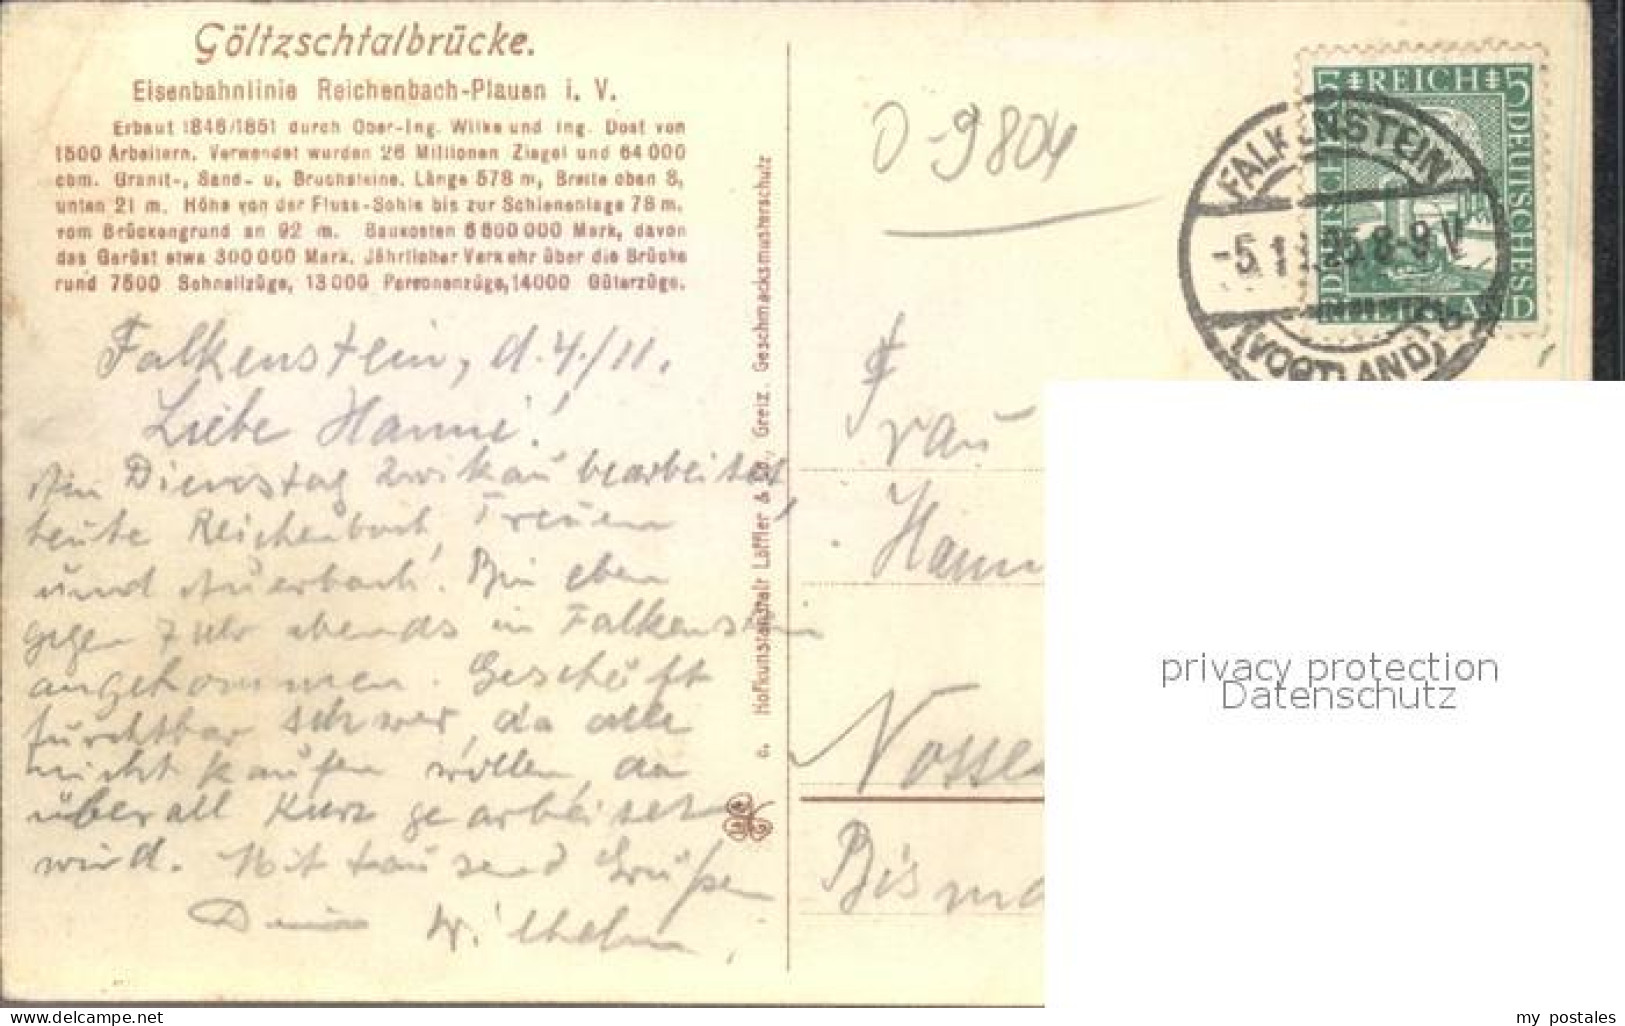 Göltzschtalbrücke.
Eisenbahnlinie Reichenbach-Plauen i. V.
Erbaut 1846/1851 durch Ober-Ing. Wilke und Ing. Dost von
1500 Arbeitern. Verwendet wurden 26 Millionen Ziegel und 64000
cbm. Granit-, Sand- u. Bruchsteine. Länge 578 m, Breite oben 8,
unten 21 m. Höhe von der Fluss-Sohle bis zur Schienenlage 78 m.
vom Brückengrund an 92 m. Baukosten 6600000 Mark, davon
das Gerüst etwa 300000 Mark. Jährlicher Verkehr über die Brücke
rund 7500 Schnellzüge, 13000 Personenzüge, 14000 Güterzüge.
Falkenstein, d. 4./11.
Liebe Hanni!
Am Dienstag Zwickau bearbeitet,
heute Reichenbach, Treuen
und Auerbach. Bin eben
gegen 7 Uhr abends in Falkenstein
angekommen. Geschäft
furchtbar schwer, da alle
nicht kaufen wollen, da
überall kurz gearbeitet
wird. Mit tausend Grüßen
Dein Wilhelm.
c. Hofkunstanstalt Löffler & Co., Greiz. Geschmacksmusterschutz
0-9804
5 REICH 5
DEUTSCHES
FALKENSTEIN
-5.11.25 8-9 V
(VOGTLAND)
Frau
Hann
Nosse
Bisma
privacy protection
Datenschutz
www.oldthing.de/ak-center
my postales